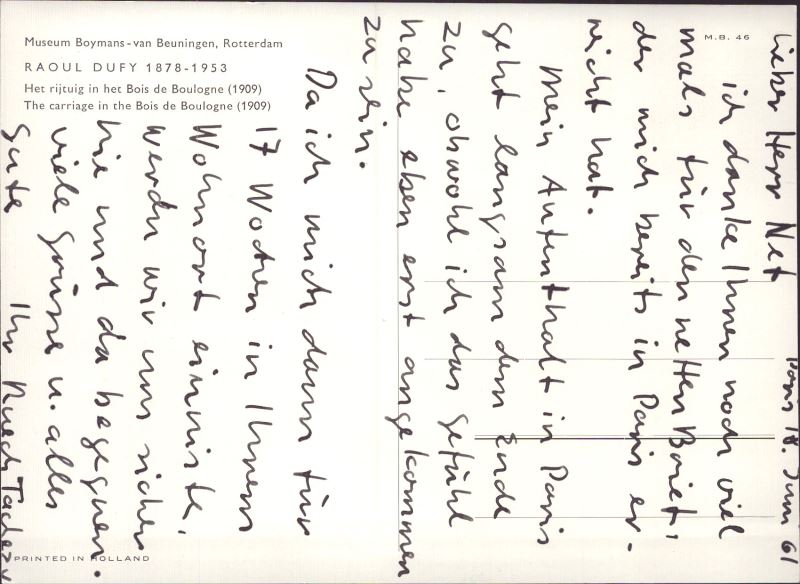 Museum Boymans-van Beuningen, Rotterdam
RAOUL DUFY 1878-1953
Het rijtuig in het Bois de Boulogne (1909)
The carriage in the Bois de Boulogne (1909)
M.B. 46
PRINTED IN HOLLAND
Paris 18. Juni 61
Lieber Herr Net
ich danke Ihnen noch viel
mals für den netten Brief,
der mich bereits in Paris er-
reicht hat.
Mein Aufenthalt in Paris
geht langsam dem Ende
zu, obwohl ich das Gefühl
habe eben erst angekommen
zu sein.
Da ich mich dann für
17 Wochen in Ihrem
Wohnort einniste,
werden wir uns sicher
hie und da begegnen.
Viele Grüsse u. alles
Gute Ihr